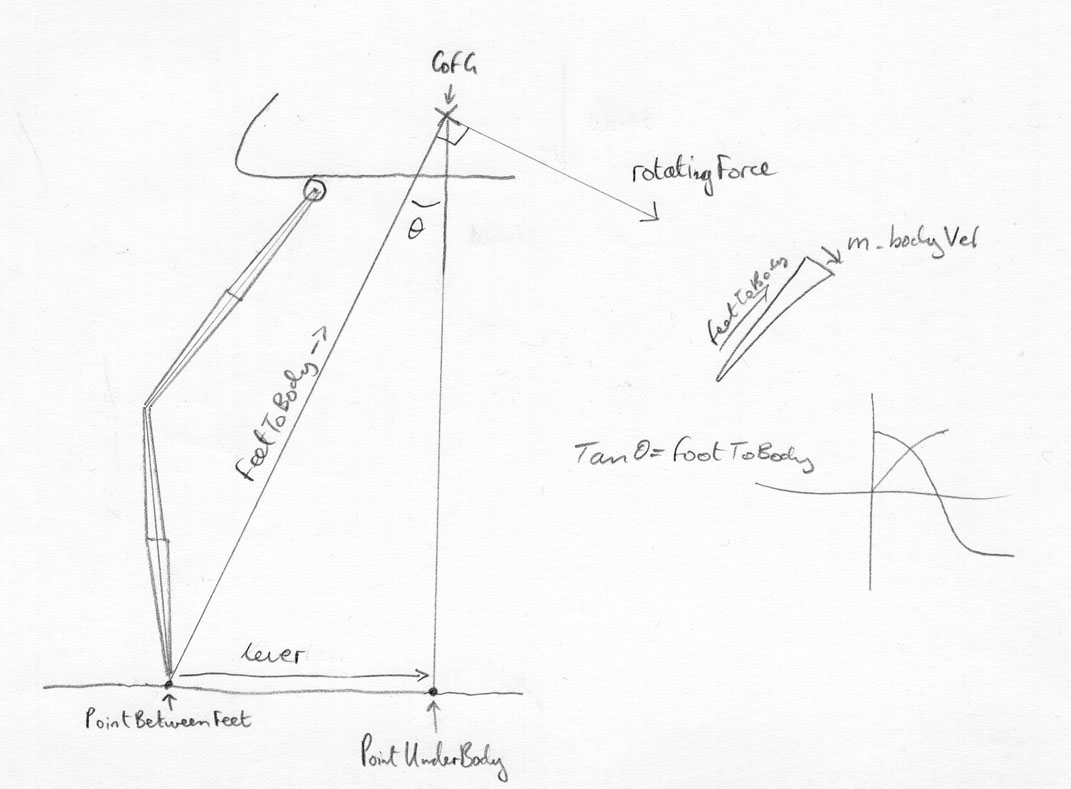 CofG
rotatingForce
θ
m-bodyVel
FeetToBody
FeetToBody →
Tan θ = FootToBody
lever
PointBetweenFeet
PointUnderBody